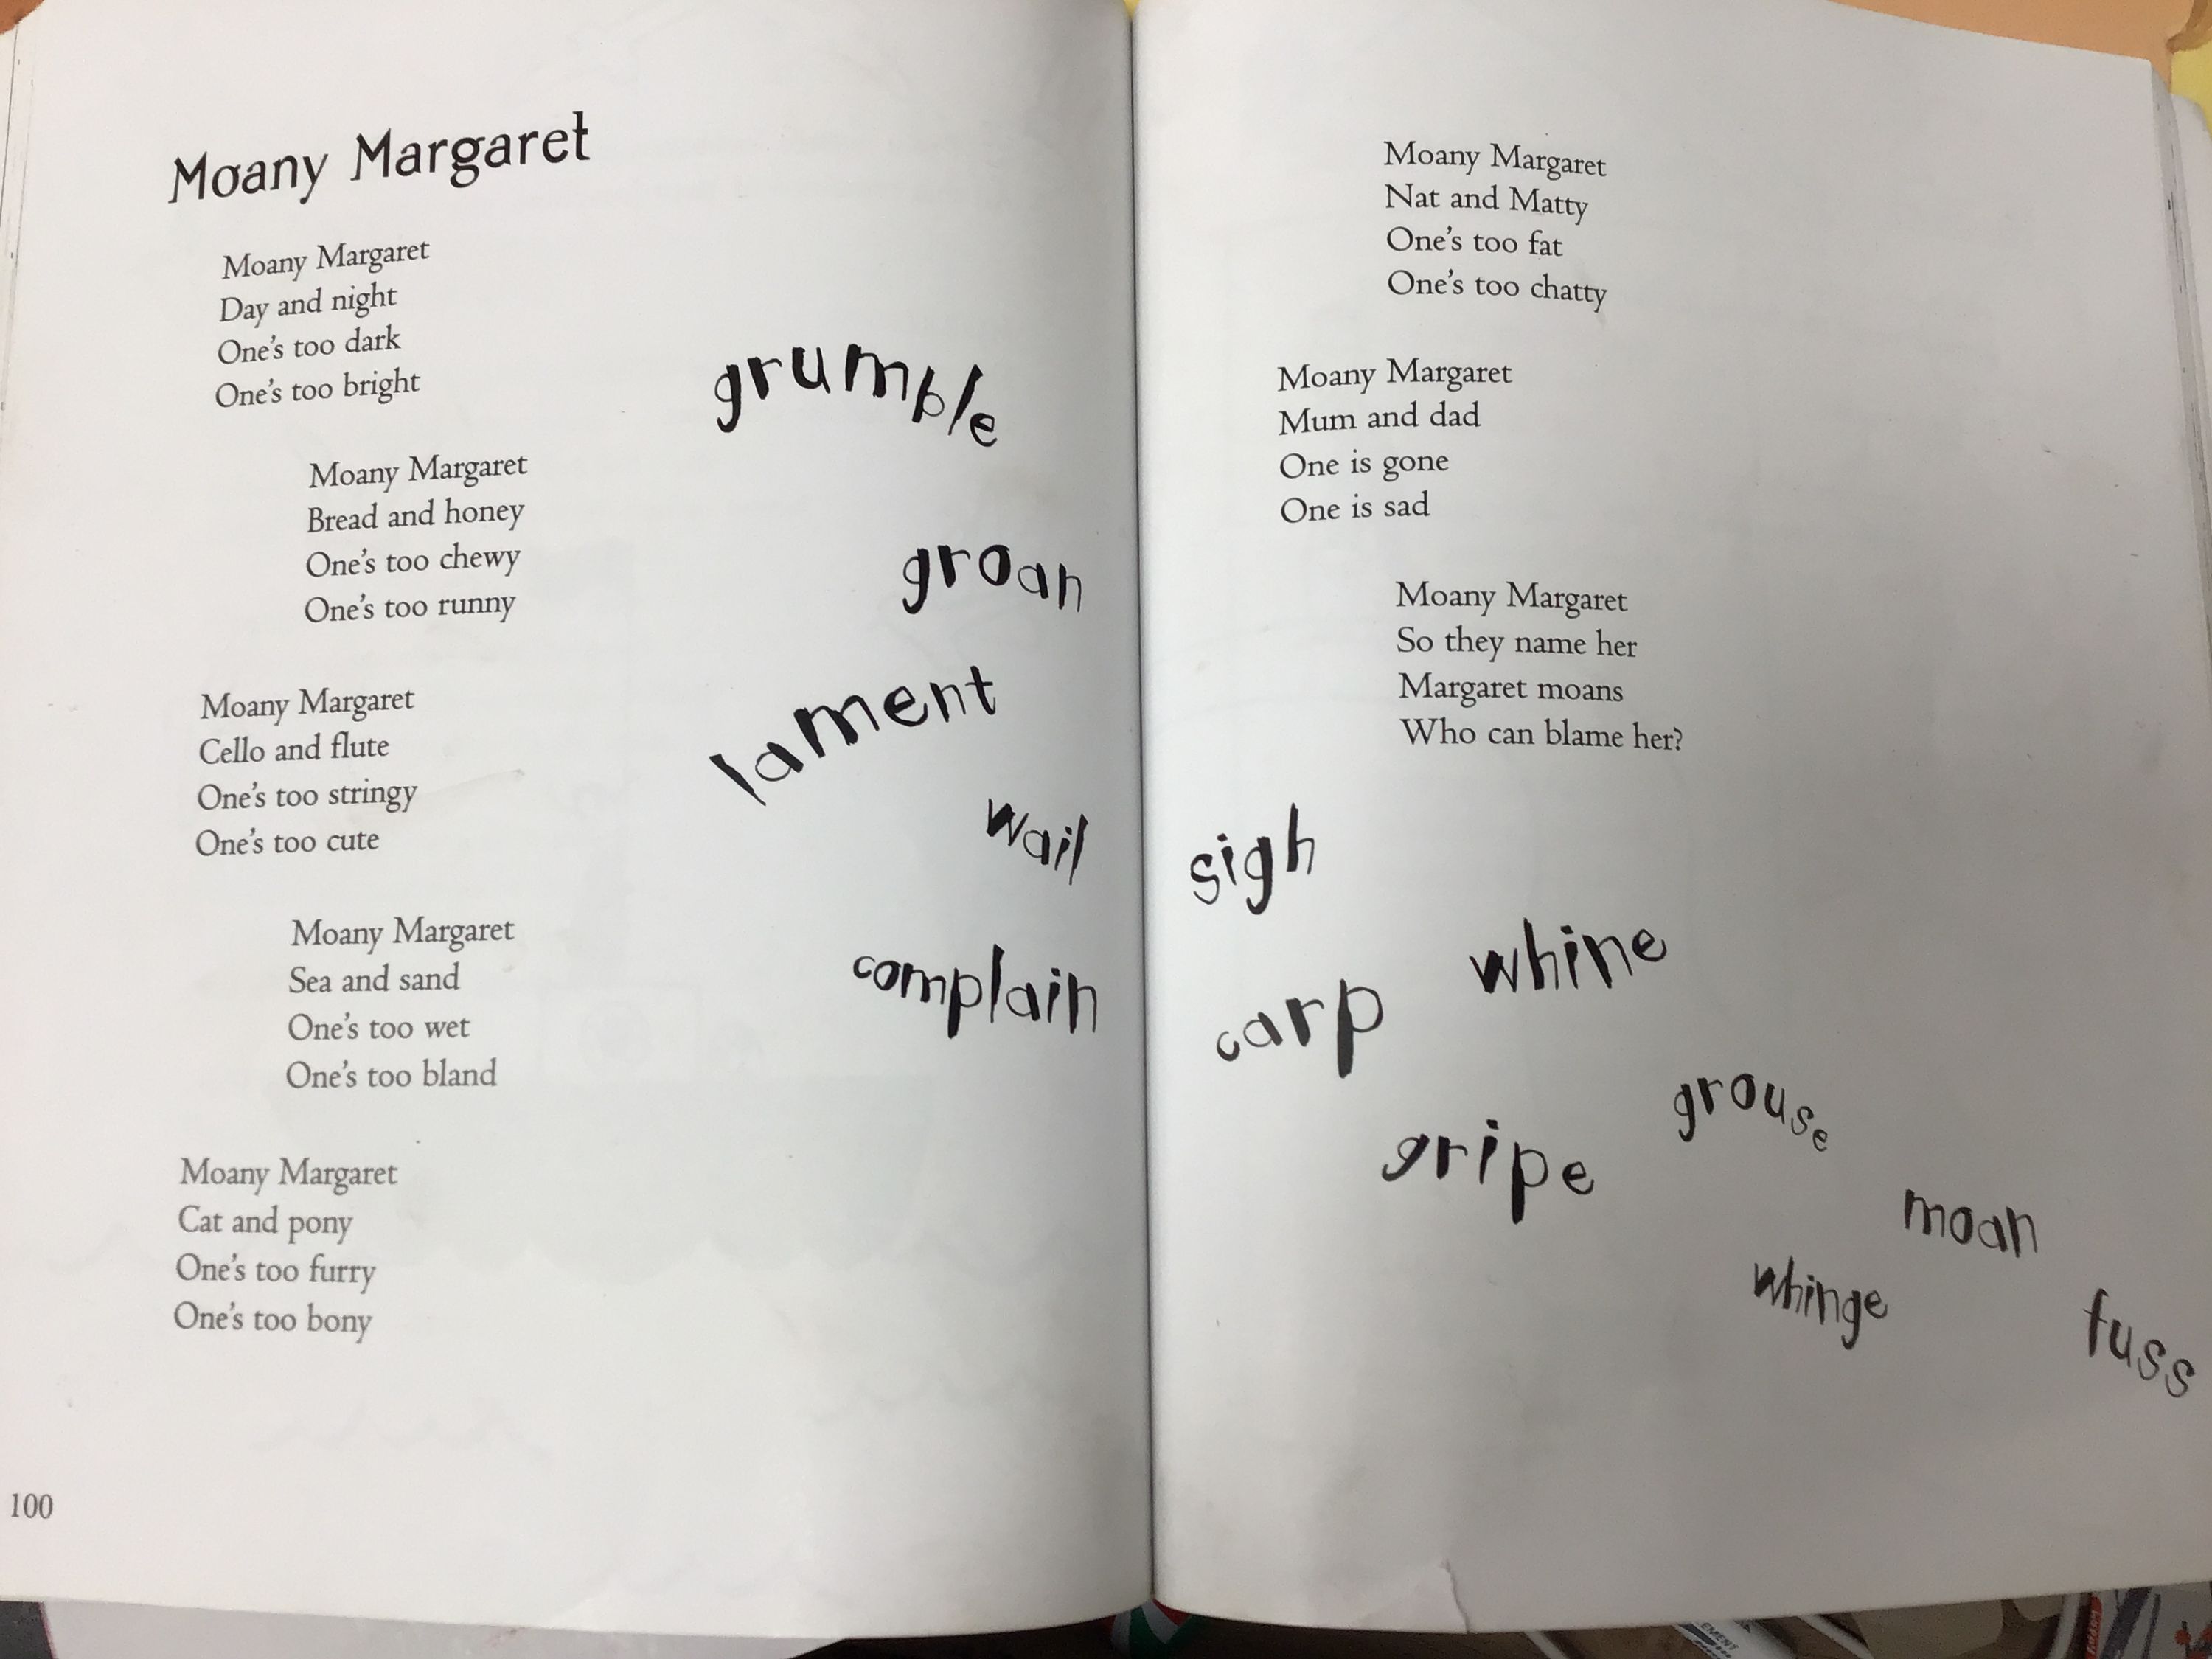 Moany Margaret
Moany Margaret
Day and night
One's too dark
One's too bright
Moany Margaret
Bread and honey
One's too chewy
One's too runny
Moany Margaret
Cello and flute
One's too stringy
One's too cute
Moany Margaret
Sea and sand
One's too wet
One's too bland
Moany Margaret
Cat and pony
One's too furry
One's too bony
grumble
groan
lament
wail
complain
100
Moany Margaret
Nat and Matty
One's too fat
One's too chatty
Moany Margaret
Mum and dad
One is gone
One is sad
Moany Margaret
So they name her
Margaret moans
Who can blame her?
sigh
whine
carp
grouse
gripe
moan
whinge
fuss
EMENT